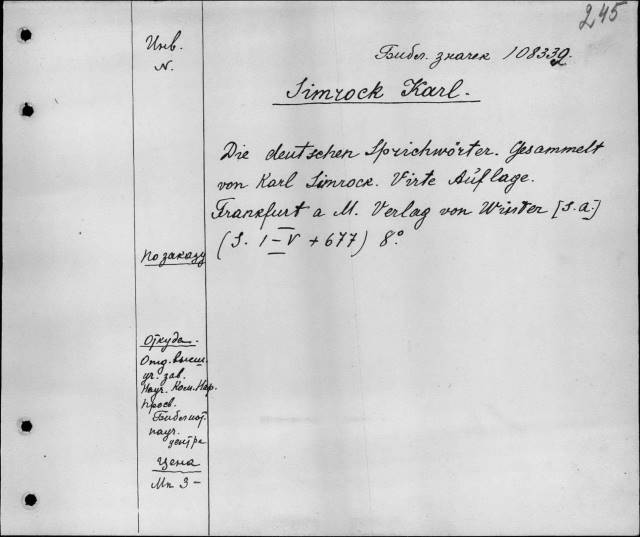 245
Инв.
N.
Библ. значек 108339.
Simrock Karl.
Die deutschen Sprichwörter. Gesammelt
von Karl Simrock. Virte Auflage.
Frankfurt a M. Verlag von Winter [S.a.]
(S. I–V + 677) 8º
По заказу
Откуда.
Отд. высш.
уч. зав.
Науч. Ком. Нар.
просв.
Библиот.
науч.
центра
Цена
Мк 3 –